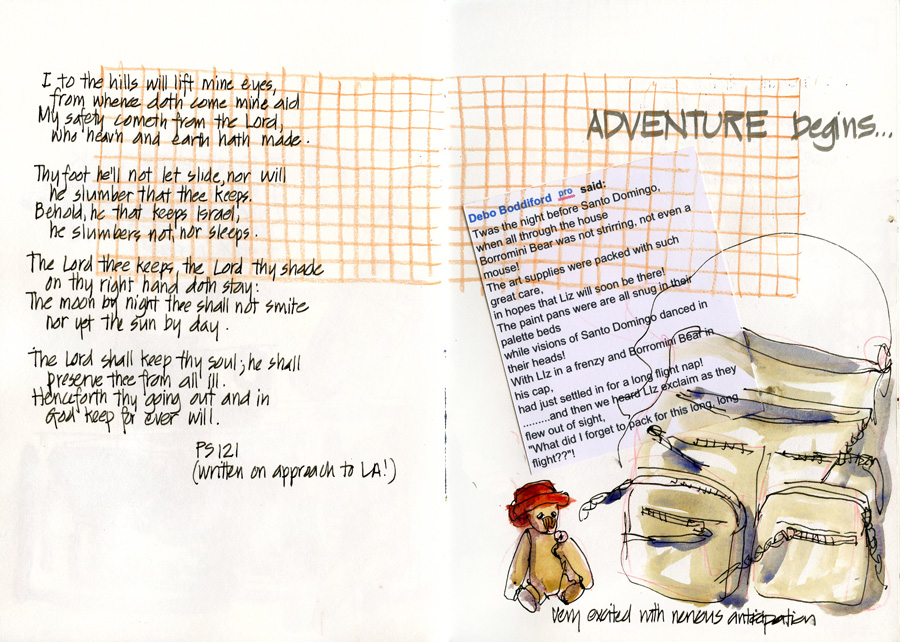 I to the hills will lift mine eyes,
from whence doth come mine aid
My safety cometh from the Lord,
who heav'n and earth hath made.
Thy foot he'll not let slide, nor will
he slumber that thee keeps.
Behold, he that keeps Israel;
he slumbers not, nor sleeps.
The Lord thee keeps, the Lord thy shade
on thy right hand doth stay:
The moon by night thee shall not smite
nor yet the sun by day.
The Lord shall keep thy soul; he shall
preserve thee from all ill.
Henceforth thy going out and in
God keep for ever will.
PS 121
(written on approach to LA!)
ADVENTURE begins...
Debo Boddiford pro said:
Twas the night before Santo Domingo,
when all through the house
Borromini Bear was not strirring, not even a
mouse!
The art supplies were packed with such
great care,
in hopes that Liz will soon be there!
The paint pans were all snug in their
palette beds
while visions of Santo Domingo danced in
their heads!
With LIz in a frenzy and Borromini Bear in
his cap,
had just settled in for a long flight nap!
.........and then we heard LIz exclaim as they
flew out of sight,
"What did I forget to pack for this long, long
flight??"!
very excited with nervous anticipation